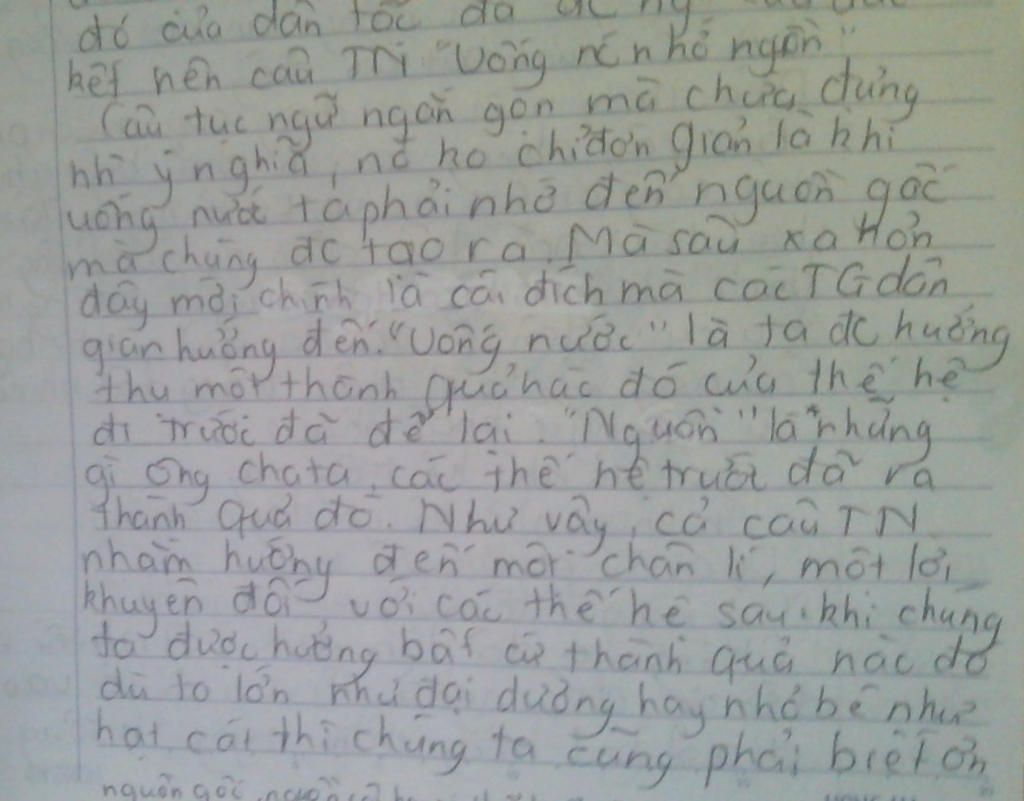 đó của dân tộc đã
kết nên câu TN "Uống nc nhớ nguồn"
Câu tục ngữ ngắn gọn mà chứa đựng
nh` ý nghĩa, nó ko chỉ đơn giản là khi
uống nước ta phải nhớ đến nguồn gốc
mà chúng đc tạo ra. Mà sâu xa hơn
đây mới chính là cái đích mà các TG dân
gian hướng đến. "Uống nước" là ta đc hưởng
thụ một thành quả nào đó của thế hệ
đi trước đã để lại. "Nguồn" là những
gì ông cha ta, các thế hệ trước đã ra
thành quả đó. Như vậy, cả câu TN
nhằm hướng đến một chân lí, một lời
khuyên đối với các thế hệ sau. khi chúng
ta được hưởng bất cứ thành quả nào đó
dù to lớn như đại dương hay nhỏ bé như
hạt cát thì chúng ta cũng phải biết ơn
nguồn gốc